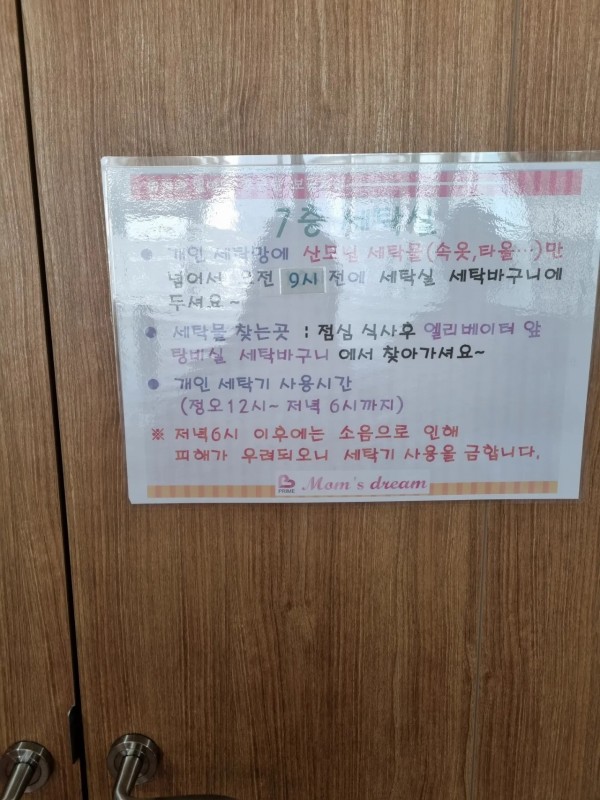 7층 세탁실
● 개인 세탁망에 산모님 세탁물(속옷,타울…)만
넣어서 오전 9시 전에 세탁실 세탁바구니에
두셔요~
● 세탁물 찾는곳 : 점심 식사후 엘리베이터 앞
탕비실 세탁바구니 에서 찾아가셔요~
● 개인 세탁기 사용시간
(정오12시~ 저녁 6시까지)
※ 저녁6시 이후에는 소음으로 인해
피해가 우려되오니 세탁기 사용을 금합니다.
PRIME Mom's dream